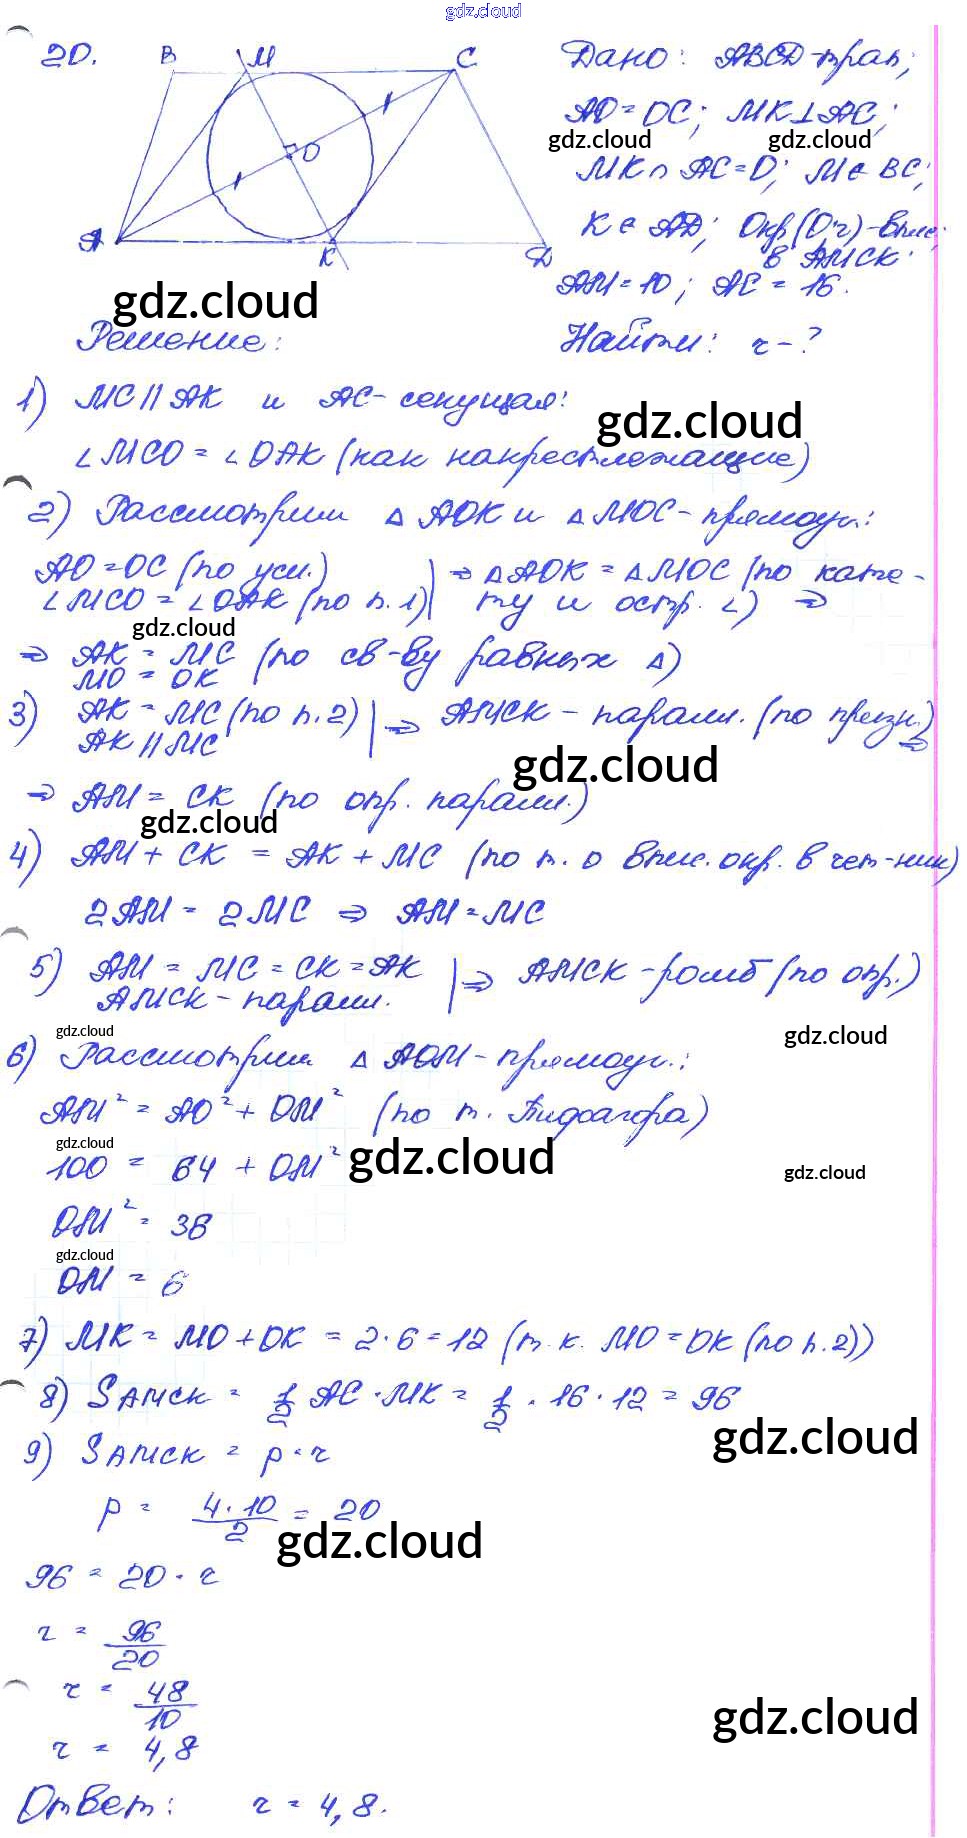 gdz.cloud
20.
B M C
O
A K D
Дано: ABCD-трап;
AO=OC; MK⊥AC;
gdz.cloud gdz.cloud
MK∩AC=O; M∈BC;
K∈AD; Окр(O;r)-впис.
в AMCK.
AM=10; AC=16.
gdz.cloud
Решение:
Найти: r-?
1) MC||AK и AC-секущая:
gdz.cloud
∠MCO=∠OAK (как накрестлежащие)
2) Рассмотрим △AOK и △MOC-прямоуг.:
AO=OC (по усл.)
∠MCO=∠OAK (по п.1) | ⇒ △AOK=△MOC (по кате-
ту и остр. ∠) ⇒
gdz.cloud
⇒ AK=MC (по св-ву равных △)
MO=OK
3) AK=MC (по п.2) | ⇒ AMCK-паралл. (по призн.) ⇒
AK||MC
gdz.cloud
⇒ AM=CK (по опр. паралл.)
gdz.cloud
4) AM+CK=AK+MC (по т. о впис. окр. в чет-ник)
2AM=2MC ⇒ AM=MC
5) AM=MC=CK=AK | ⇒ AMCK-ромб (по опр.)
AMCK-паралл.
gdz.cloud gdz.cloud
6) Рассмотрим △AOM-прямоуг.:
AM²=AO²+OM² (по т. Пифагора)
gdz.cloud gdz.cloud
100=64+OM²
gdz.cloud
OM²=36
gdz.cloud
OM=6
7) MK=MO+OK=2·6=12 (т.к. MO=OK (по п.2))
8) SAMCK=1/2 AC·MK=1/2·16·12=96
gdz.cloud
9) SAMCK=p·r
p=4·10/2=20
gdz.cloud
96=20·r
r=96/20
r=48/10
gdz.cloud
r=4,8
Ответ: r=4,8.